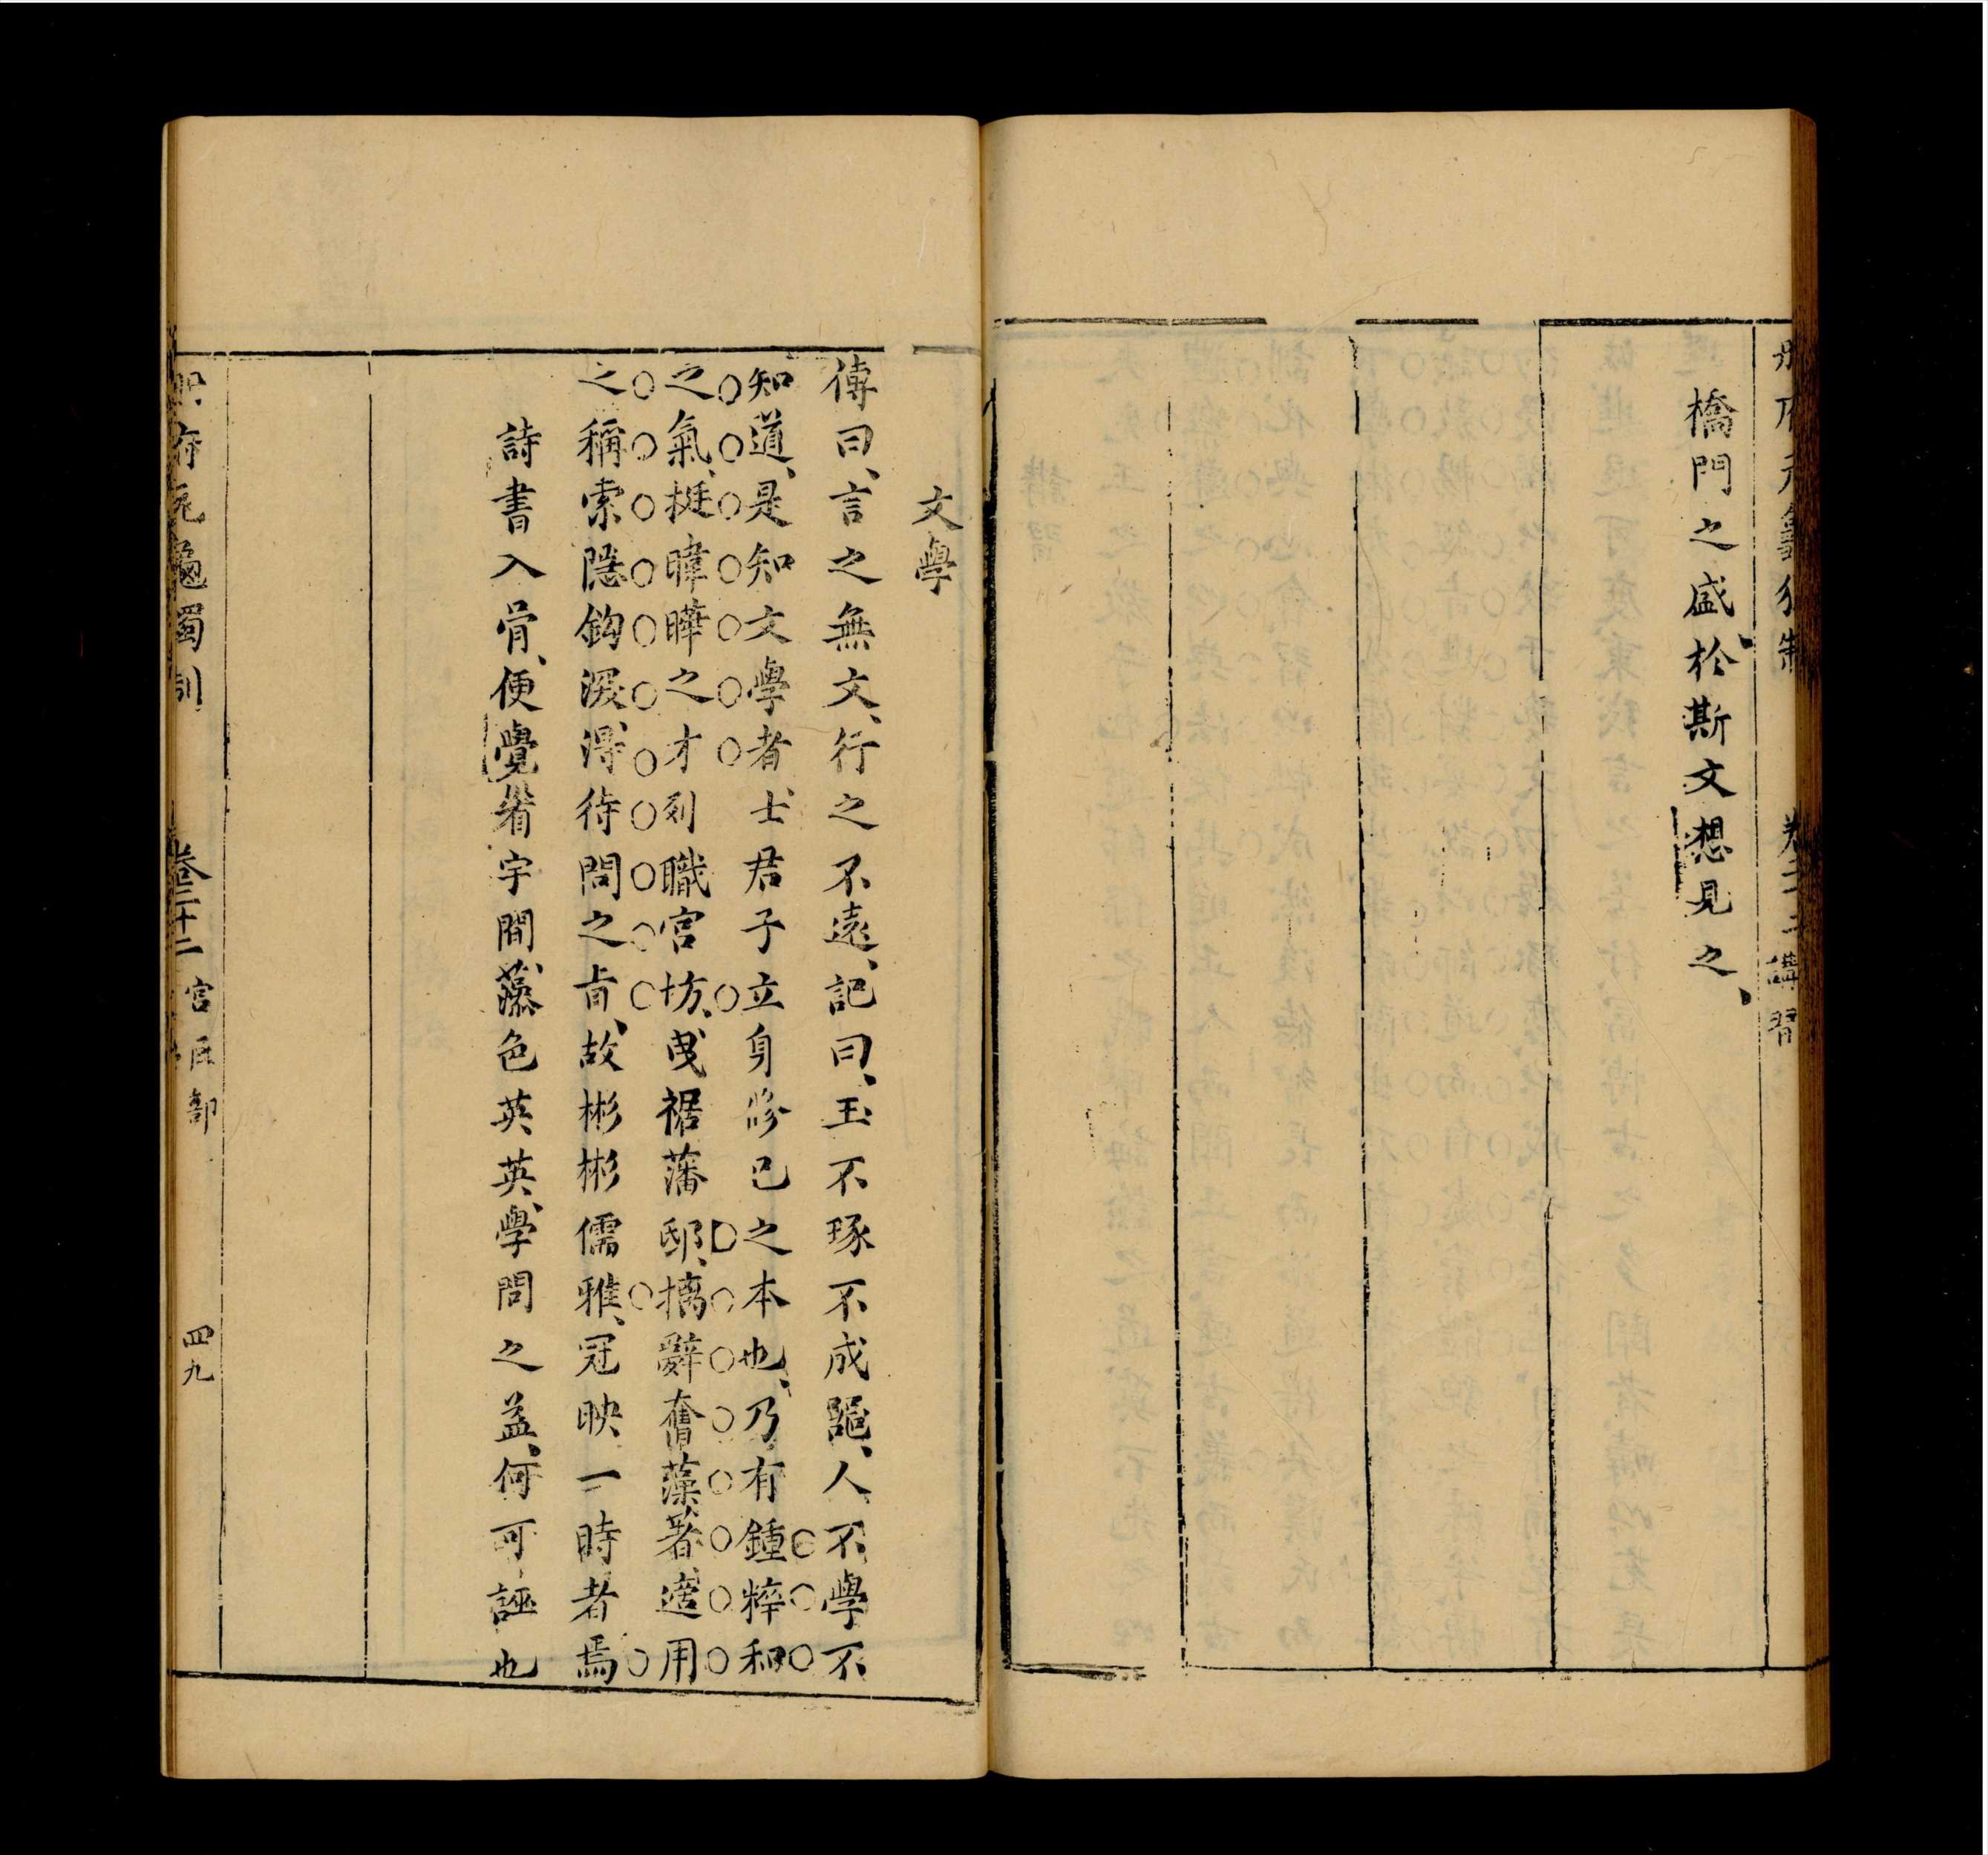 冊府元龜獨制　卷二十二　講習
橋門之盛、於斯文想見之、
文學
傳曰、言之無文、行之不遠、記曰、玉不琢不成噐、人不學不
知道、是知文學者、士君子立身修已之本也、乃有鍾粹和
之氣、挺暐曄之才、列職宮坊、曳裾藩邸、摛辭奮藻、著適用
之稱、索隱鈎深、得待問之㫖、故彬彬儒雅、冠映一時者焉
詩書入骨、便覺眉宇間、藻色英英、學問之益、何可誣也
冊府元龜獨制　卷二十二　宮臣部　四九